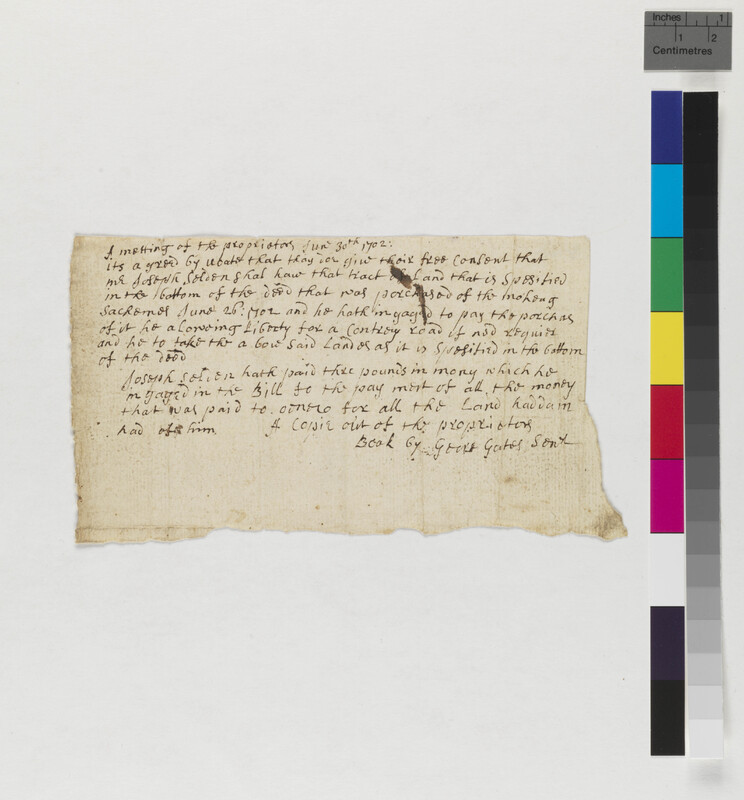 Inches 1
1 2
Centimetres
A metting of the proprietors June 30th 1702:
its a gred by uoate that thay doe give their free Consent that
mr Joseph Selden shal haue that tract Land that is Spesified
in the bottom of the deed that was porchased of the moheug
Sackemes June 26th: 1702 and he hath in gaged to pay the porchas
of it he aloweing Liberty for a Contrey road if ned requier
and he to take the a boue said Landes as it is Spesified in the bottom
of the deed
Joseph Selden hath paid thre pounds in mony which he
in gaged in the Bill to the pay ment of all the money
that was paid to oeneco for all the Land haddam
had of him A Copie out of the proprietors
Book by George Gates Senr